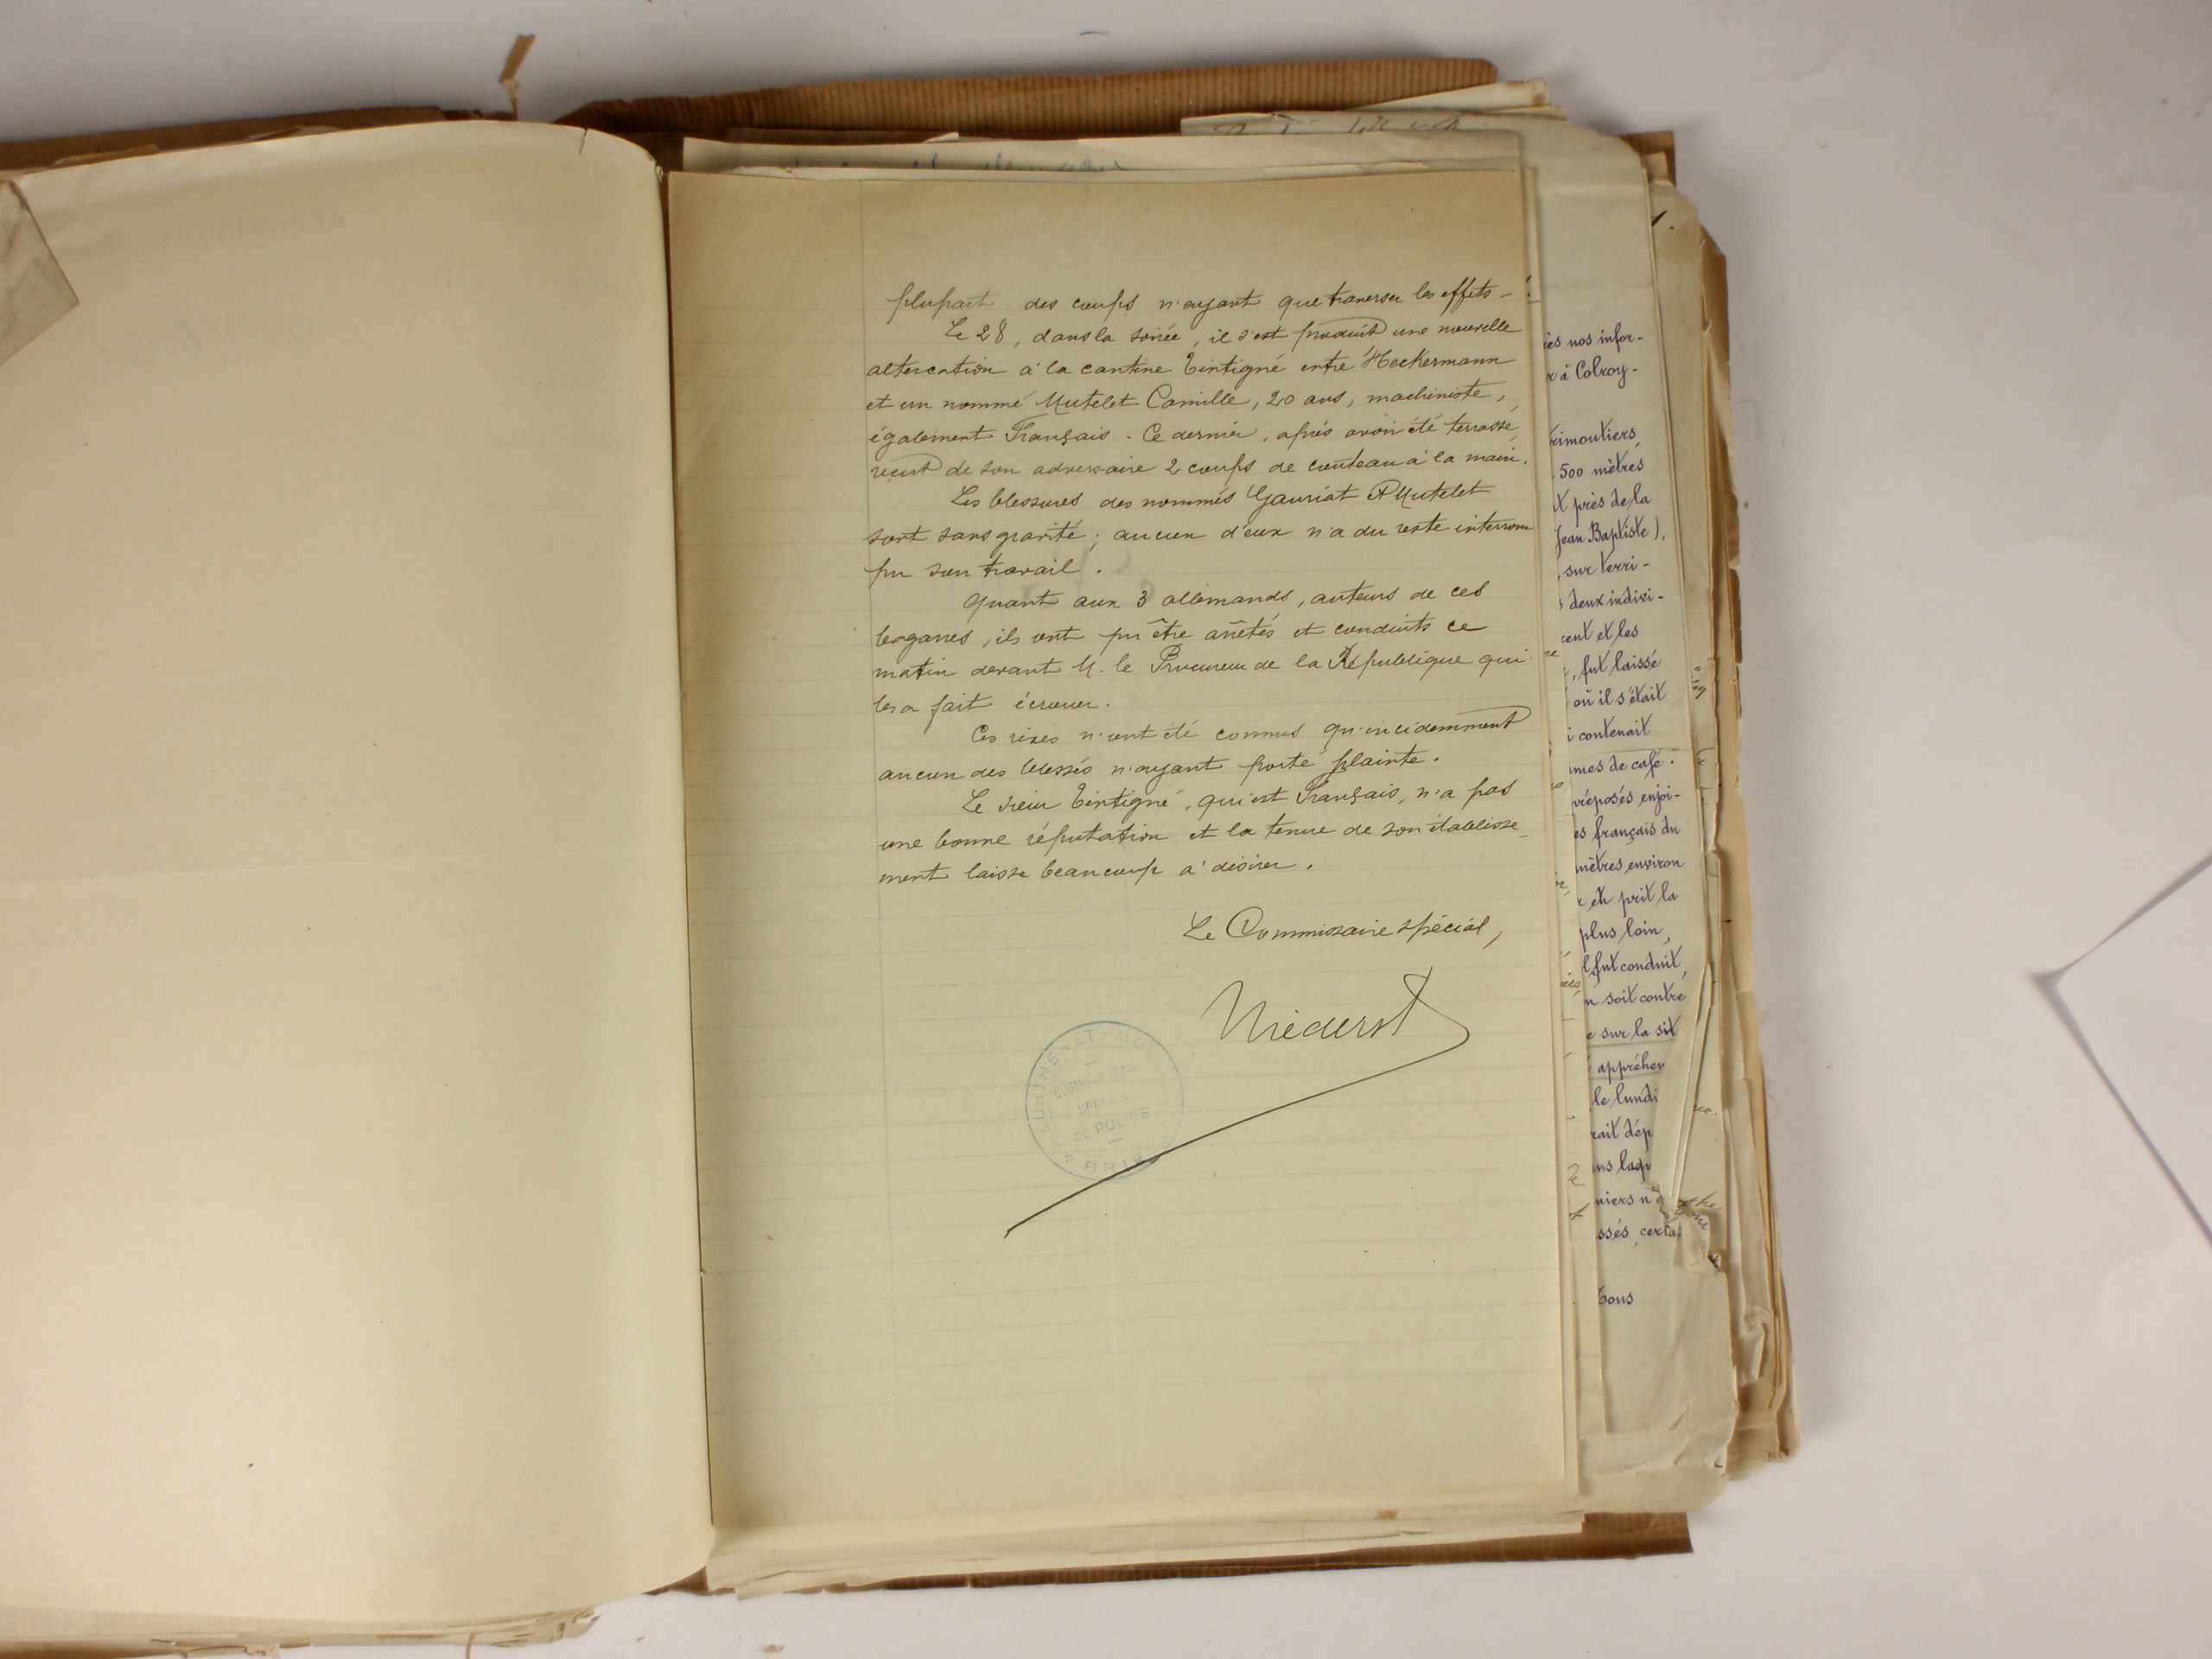 plupart des coups n'ayant que traversé les effets –
Le 28, dans la soirée, il s'est produit une nouvelle
altercation à la cantine Tintigné entre Heckermann
et un nommé Mutelet Camille, 20 ans, machiniste,
également Français. Ce dernier, après avoir été terrassé,
reçut de son adversaire 2 coups de couteau à la main.
Les blessures des nommés Gauriat & Mutelet
sont sans gravité ; aucun d'eux n'a du reste interrom
pu son travail.
Quant aux 3 allemands, auteurs de ces
bagarres, ils ont pu être arrêtés et conduits ce
matin devant M. le Procureur de la République qui
les a fait écrouer.
Ces rixes n'ont été connues qu'incidemment
aucun des blessés n'ayant porté plainte.
Le sieur Tintigné, qui est Français, n'a pas
une bonne réputation et la tenue de son établisse-
ment laisse beaucoup à désirer.
Le Commissaire spécial,
Niederst
MEURTHE-ET-MO
COMM
SPE
DE POLICE
BRI
ès nos infor-
à Colroy-
rimoutiers,
500 mètres
près de la
Jean Baptiste),
sur terri-
deux indivi-
ent et les
, fut laissé
où il s'était
contenait
mes de café.
réposés enjoi-
es français du
mètres environ
et prit la
plus loin,
fut conduit,
n soit contre
e sur la sit
appréhen
le lundi
rait dép
ns laqu
niers n'
ssés, certa
Tous